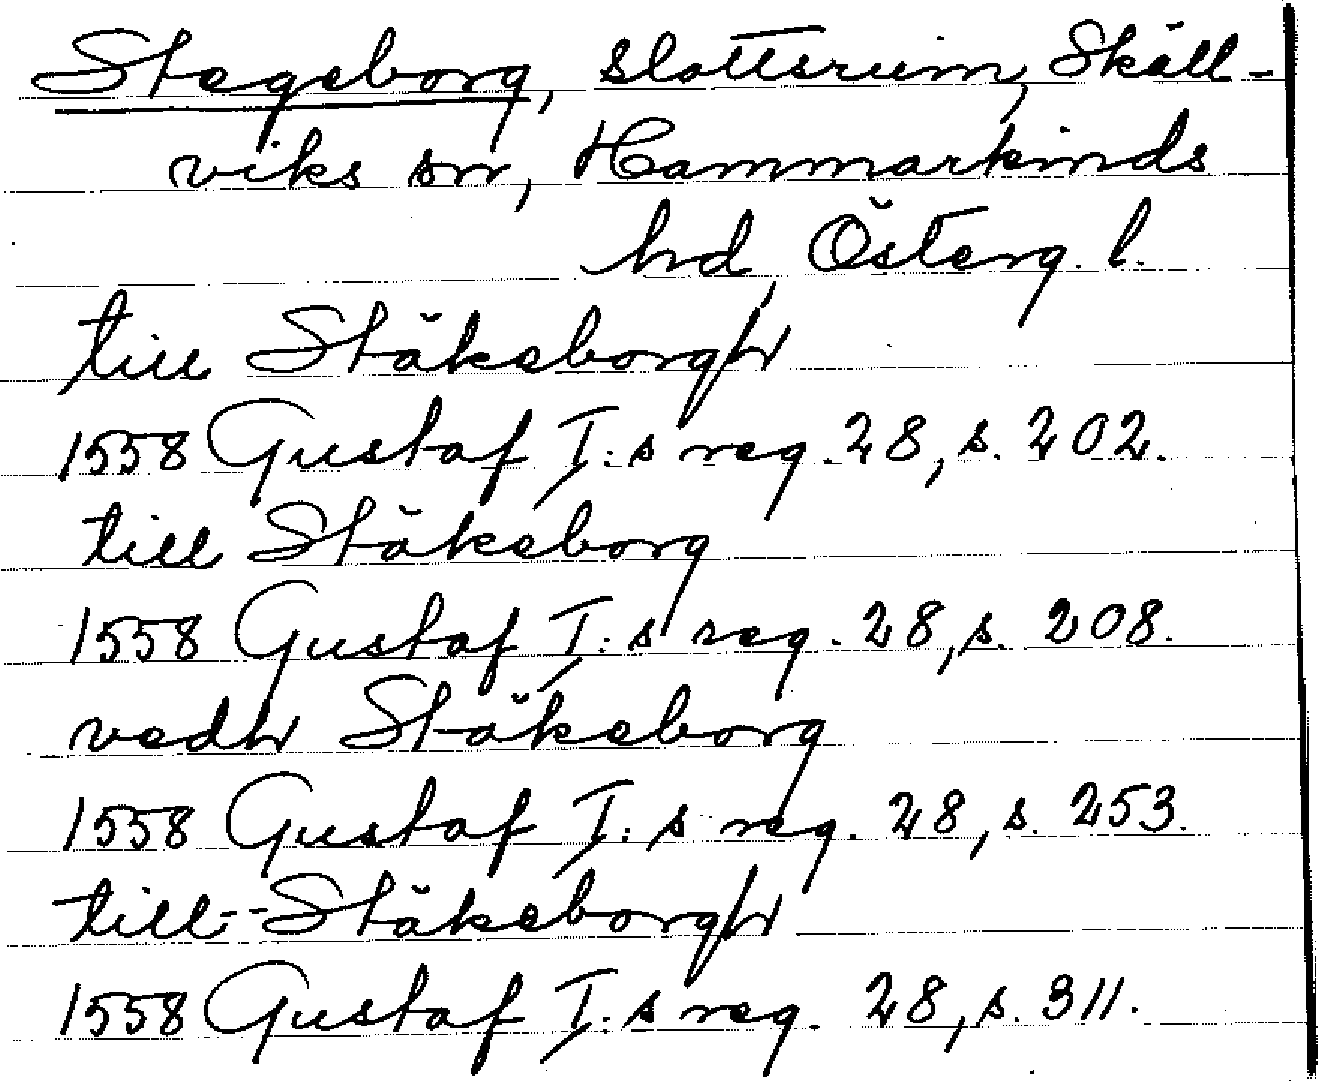 Stegeborg, slottsruin, Skäll-
viks sn, Hammarkinds
hd, Österg. l.
till Stäkeborgh
1558 Gustaf I:s reg. 28, s. 202.
till Stäkeborg
1558 Gustaf I:s reg. 28, s. 208.
vedh Stäkeborg
1558 Gustaf I:s reg. 28, s. 253.
till -- Stäkeborgh
1558 Gustaf I:s reg. 28, s. 311.